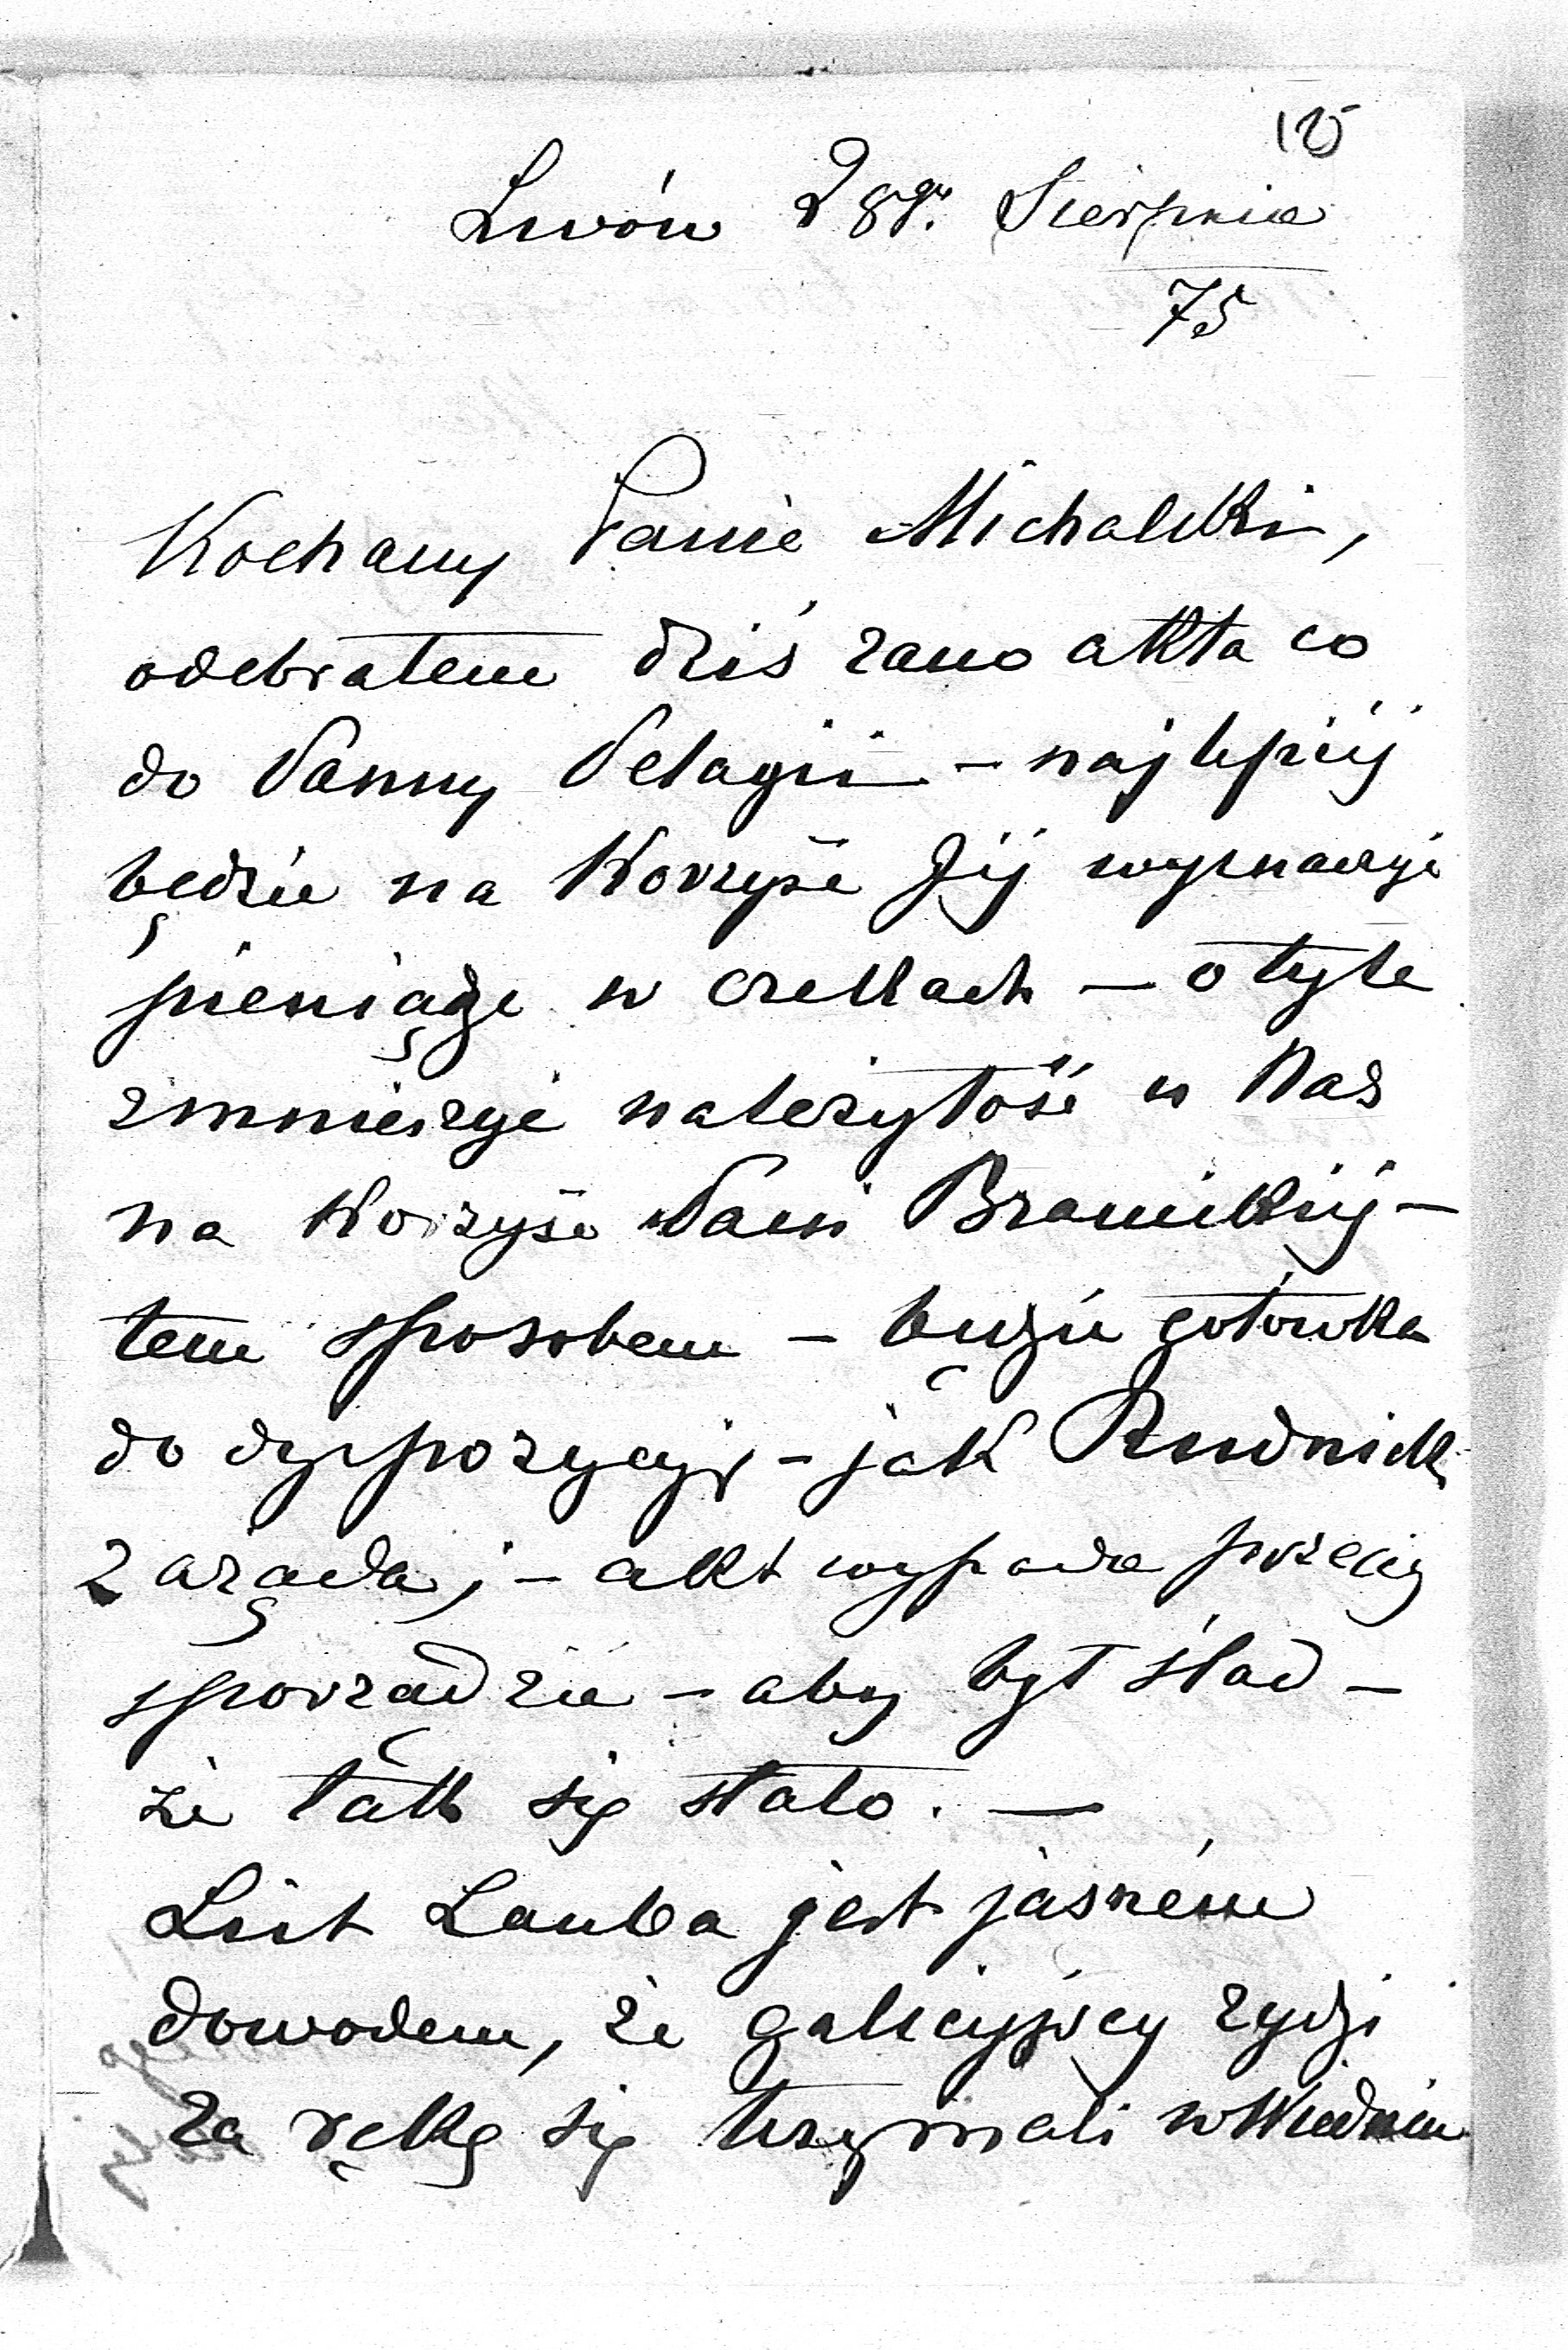 Lwów 28go Sierpnia
75
Kochany Panie Michalski,
odebrałem dziś rano akta co
do Panny Pelagii – najlepiéj
będzie na Korzyść Jéj wyznaczyć
pieniądze w czekach – o tyle
zmniejszyć należytość u Nas
na Korzyść Pani Branickiéj –
tem sposobem – będzie gotówka
do dyspozycyi, – jak Rudnicki
zażąda; – akt wypada przecię
sporządzić – aby był ślad –
że tak się stało. –
List Lauba jest jasném
dowodem, że galicyjscy żydzi
za rękę się trzymali w Wiedniu